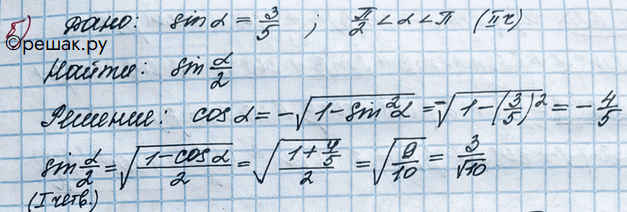 б) Дано: sin α = 3/5 ; π/2 < α < π (II ч)
©решак.ру
Найти: sin α/2
Решение: cos α = -√(1 - sin²α) = -√(1 - (3/5)²) = - 4/5
sin α/2 = √((1 - cos α)/2) = √((1 + 4/5)/2) = √(9/10) = 3/√10
(I четв.)